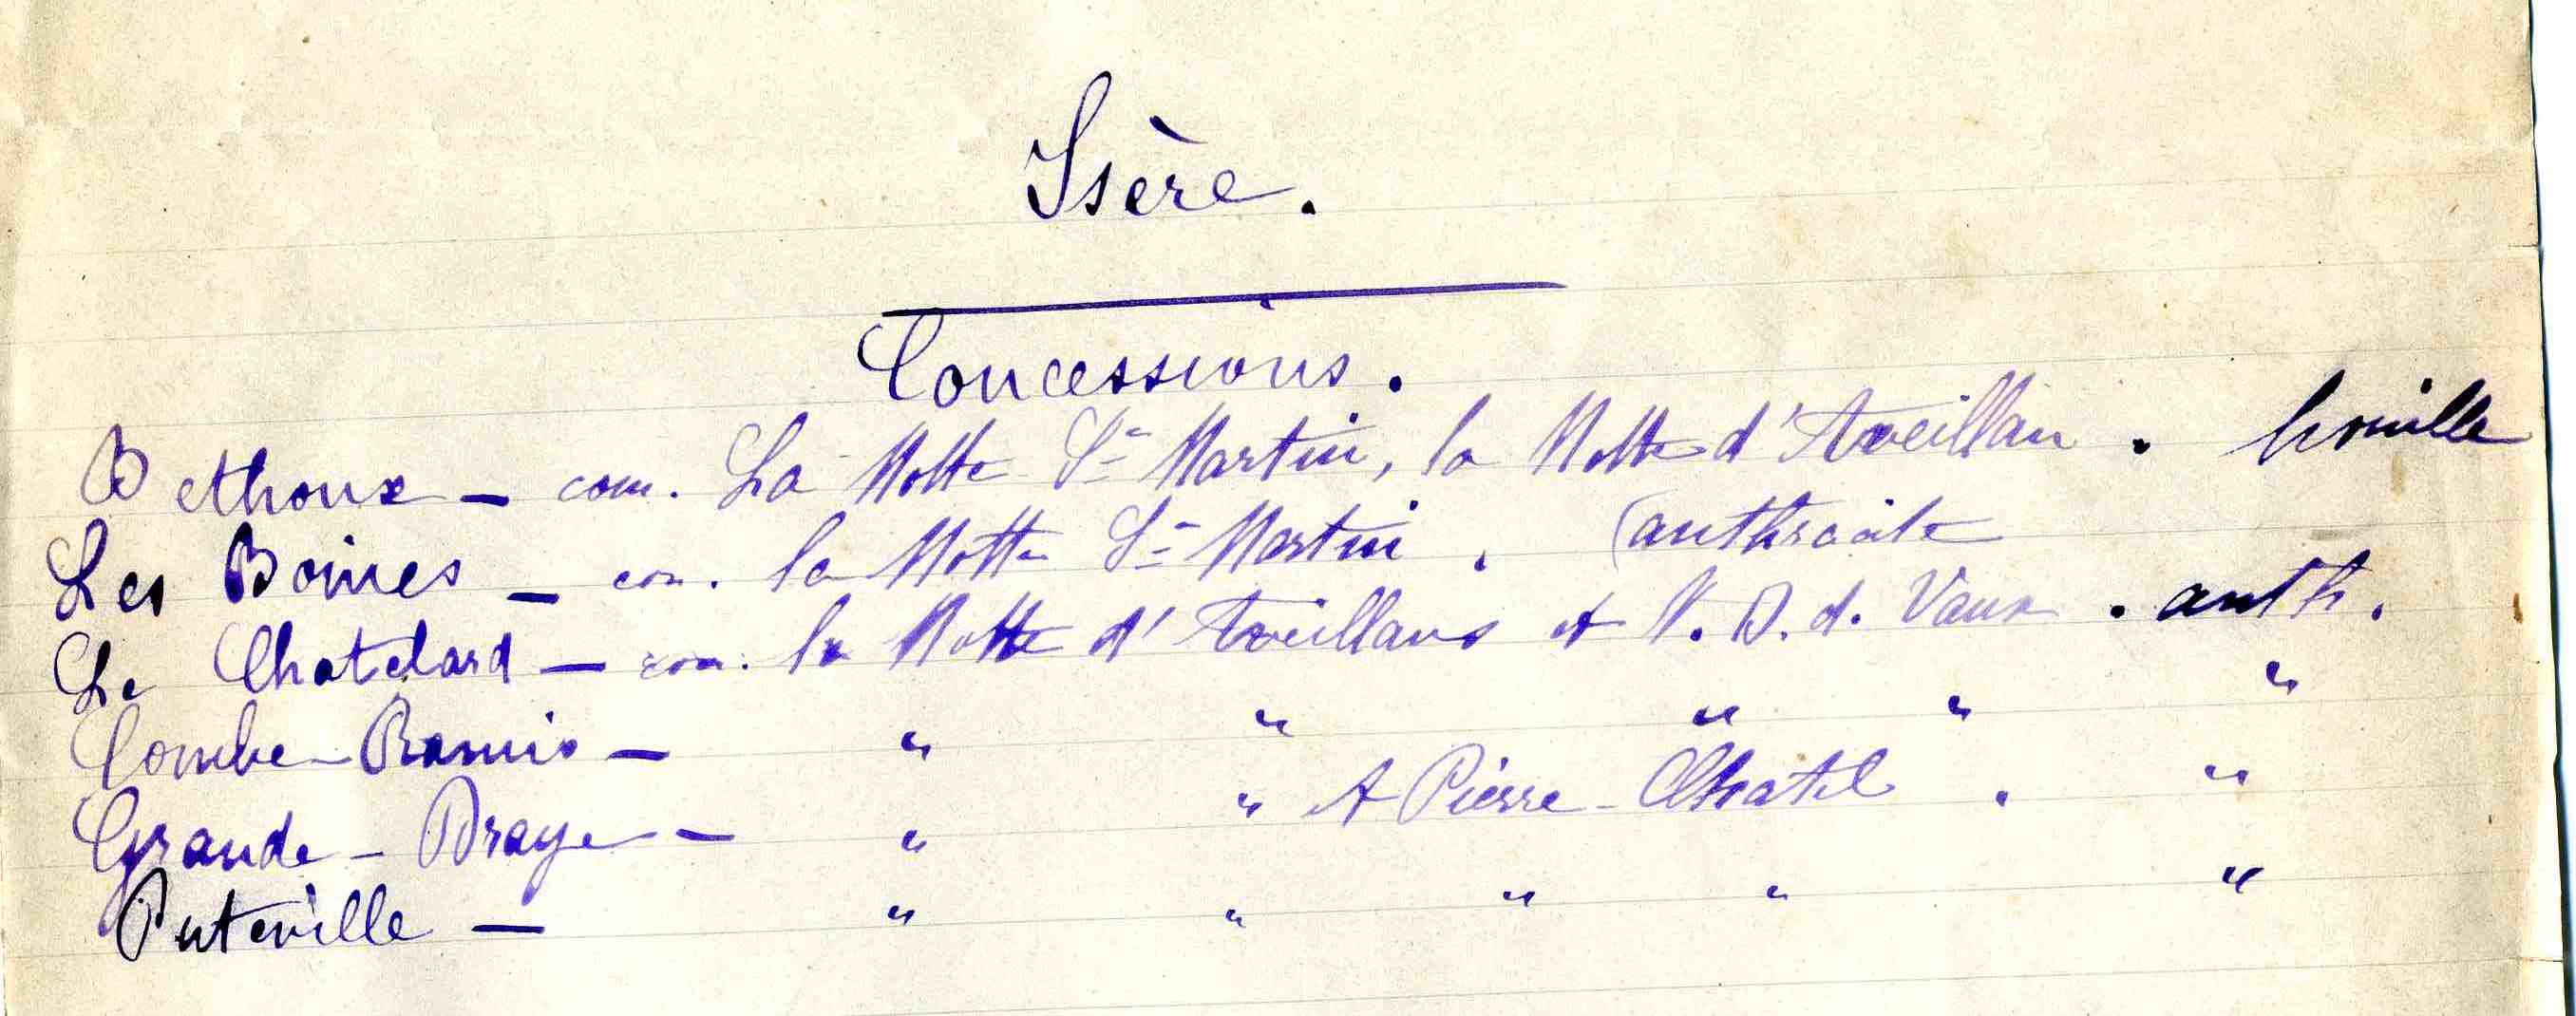 Isère.
Concessions.
Bethoux — com. La Motte St Martin, la Motte d'Aveillan. houille
Les Boines — com. la Motte St Martin. (anthracite
Le Chatelard — com. la Motte d'Aveillans et N. D. d. Vaux. anth.
Combe-Ramis — " " " " "
Grande-Draye — " " et Pierre-Chatel. "
Puteville — " " " " "